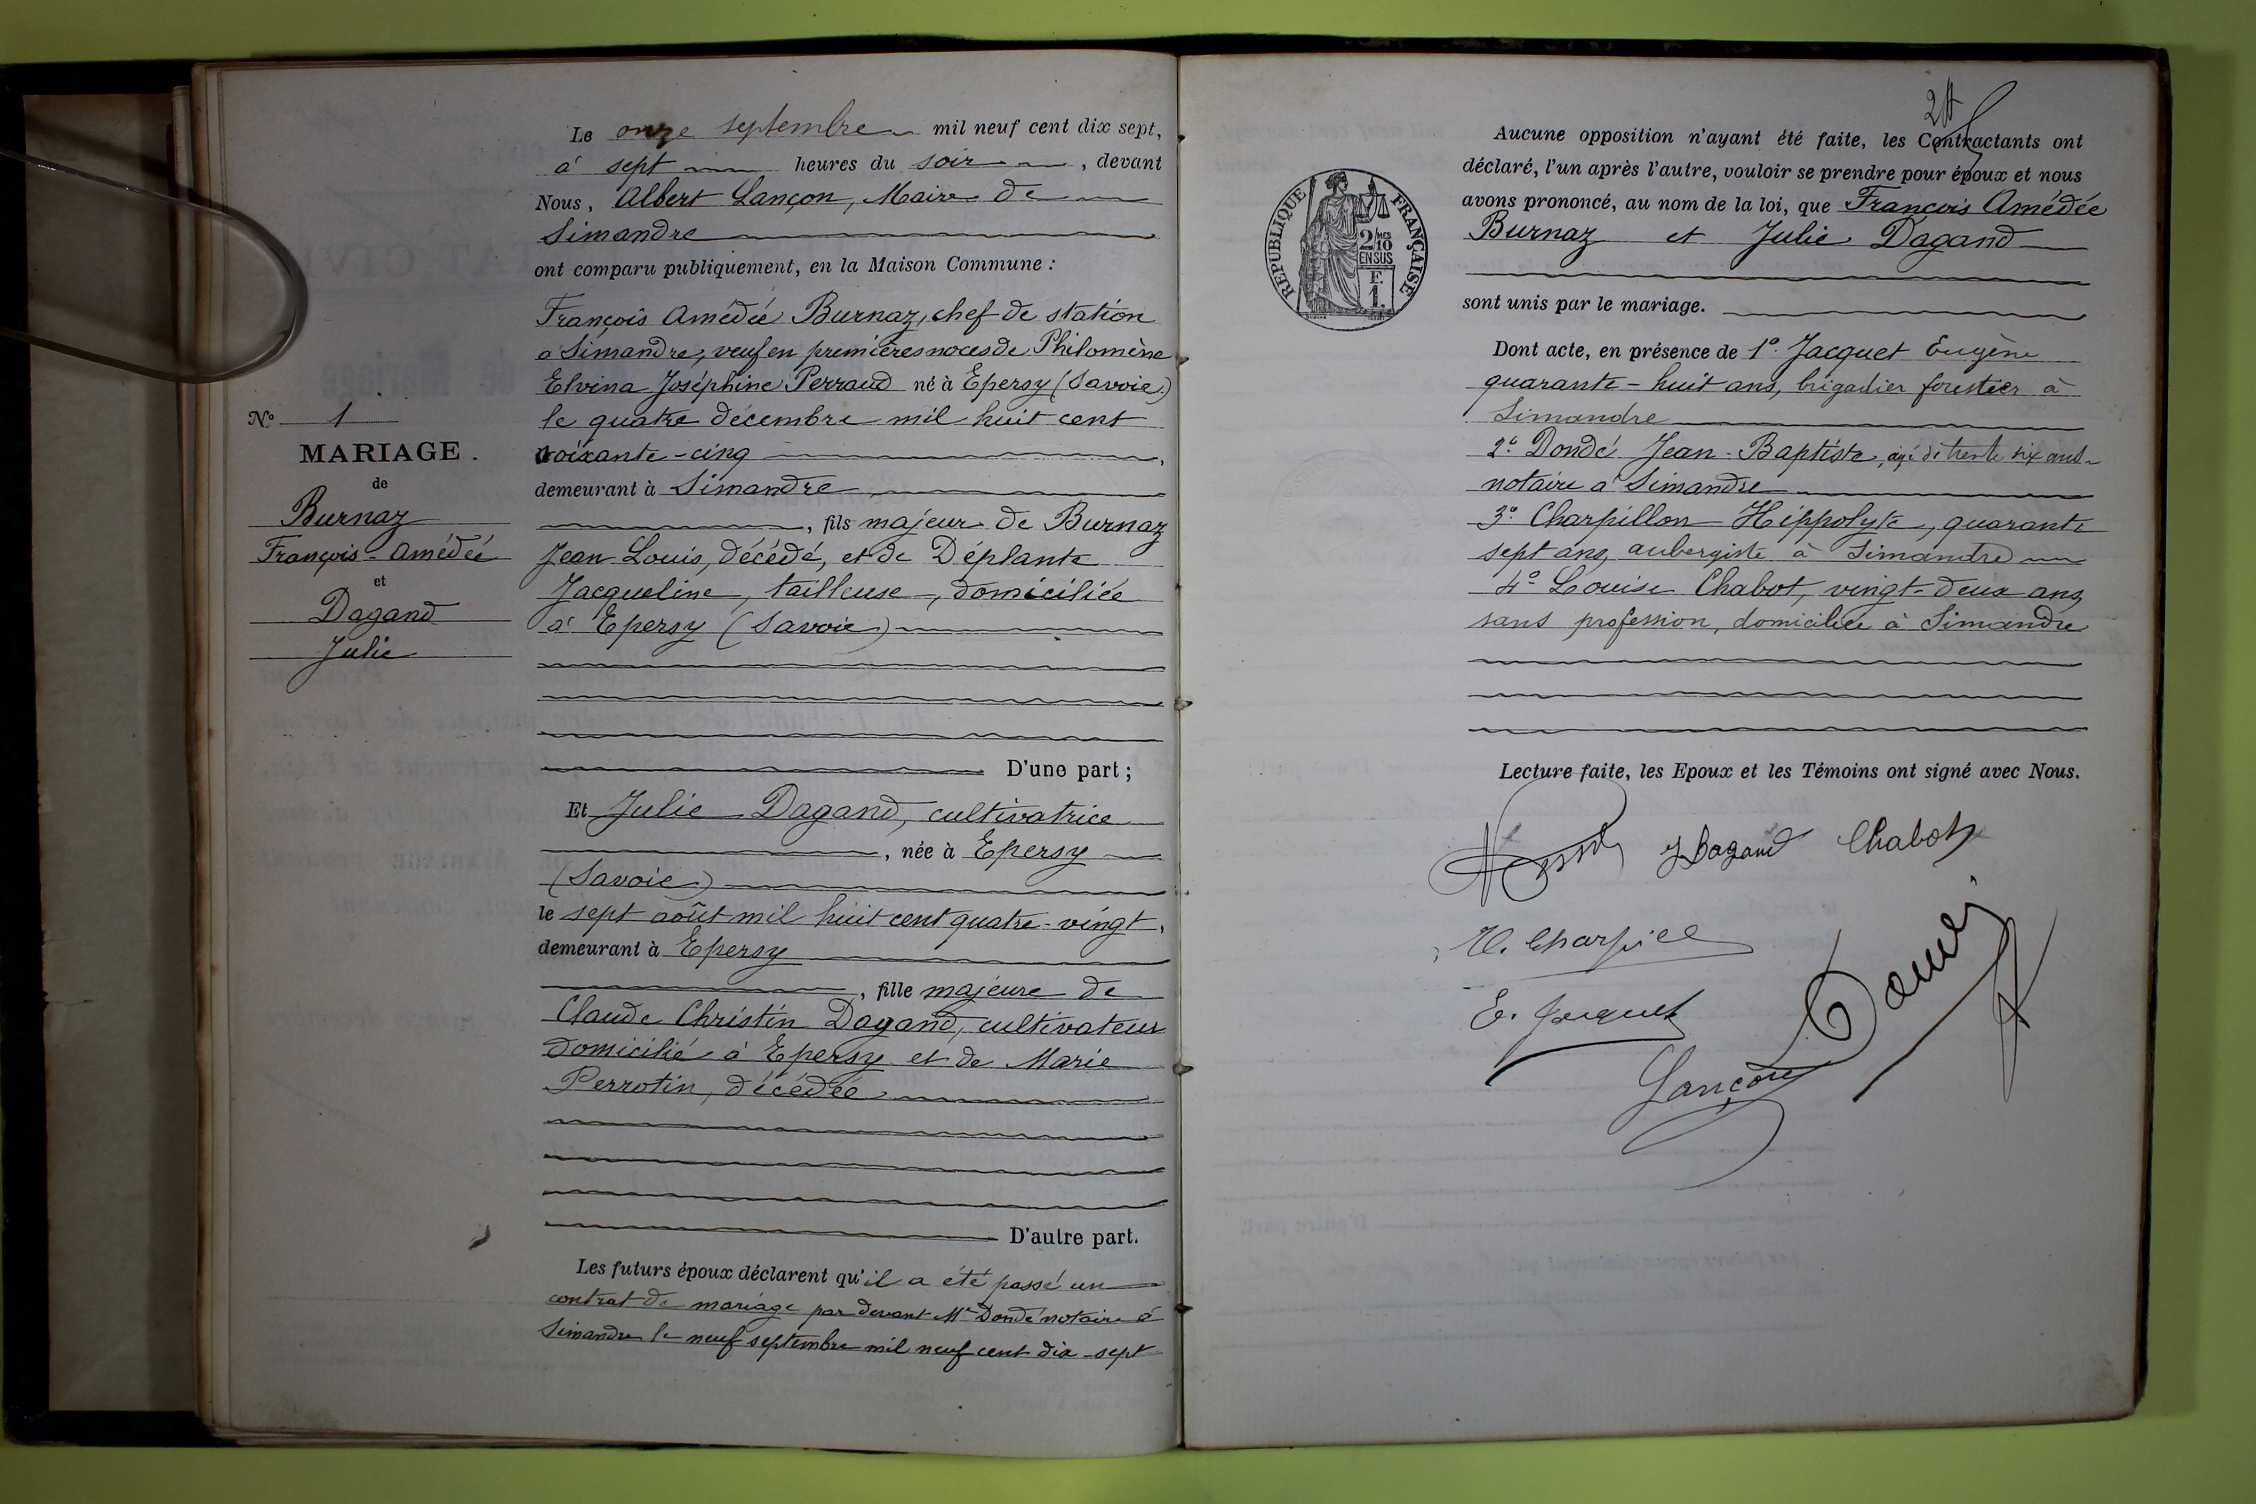 Le onze septembre mil neuf cent dix sept,
à sept heures du soir , devant
Nous, Albert Lançon, Maire de
Simandre
ont comparu publiquement, en la Maison Commune :
François Amédée Burnaz, chef de station
à Simandre, veuf en premières noces de Philomène
Elvina Joséphine Perraud né à Epersy (Savoie)
le quatre décembre mil huit cent
soixante-cinq ,
demeurant à Simandre
, fils majeur de Burnaz
Jean Louis, décédé, et de Déplante
Jacqueline, tailleuse, domiciliée
à Epersy (Savoie)
D'une part ;
Et Julie Dagand, cultivatrice
, née à Epersy
(Savoie)
le sept août mil huit cent quatre-vingt,
demeurant à Epersy
, fille majeure de
Claude Christin Dagand, cultivateur
domicilié à Epersy et de Marie
Perrotin, décédée
D'autre part.
Les futurs époux déclarent qu'il a été passé un
contrat de mariage par devant Me Dondé notaire à
Simandre le neuf septembre mil neuf cent dix-sept
No 1
MARIAGE.
de
Burnaz
François-Amédée
et
Dagand
Julie
2
RÉPUBLIQUE FRANÇAISE
2/MES
10
EN SUS
F.
1.
Aucune opposition n'ayant été faite, les Contractants ont
déclaré, l'un après l'autre, vouloir se prendre pour époux et nous
avons prononcé, au nom de la loi, que François Amédée
Burnaz et Julie Dagand
sont unis par le mariage.
Dont acte, en présence de 1o Jacquet Eugène
quarante-huit ans, brigadier forestier à
Simandre
2o Dondé Jean-Baptiste, agé de trente six ans
notaire à Simandre
3o Charpillon Hippolyte, quarante
sept ans, aubergiste à Simandre
4o Louise Chabot, vingt-deux ans,
sans profession, domiciliée à Simandre
Lecture faite, les Epoux et les Témoins ont signé avec Nous.
J Dagand Chabot
E. Jacquet
Dondé
Lançon